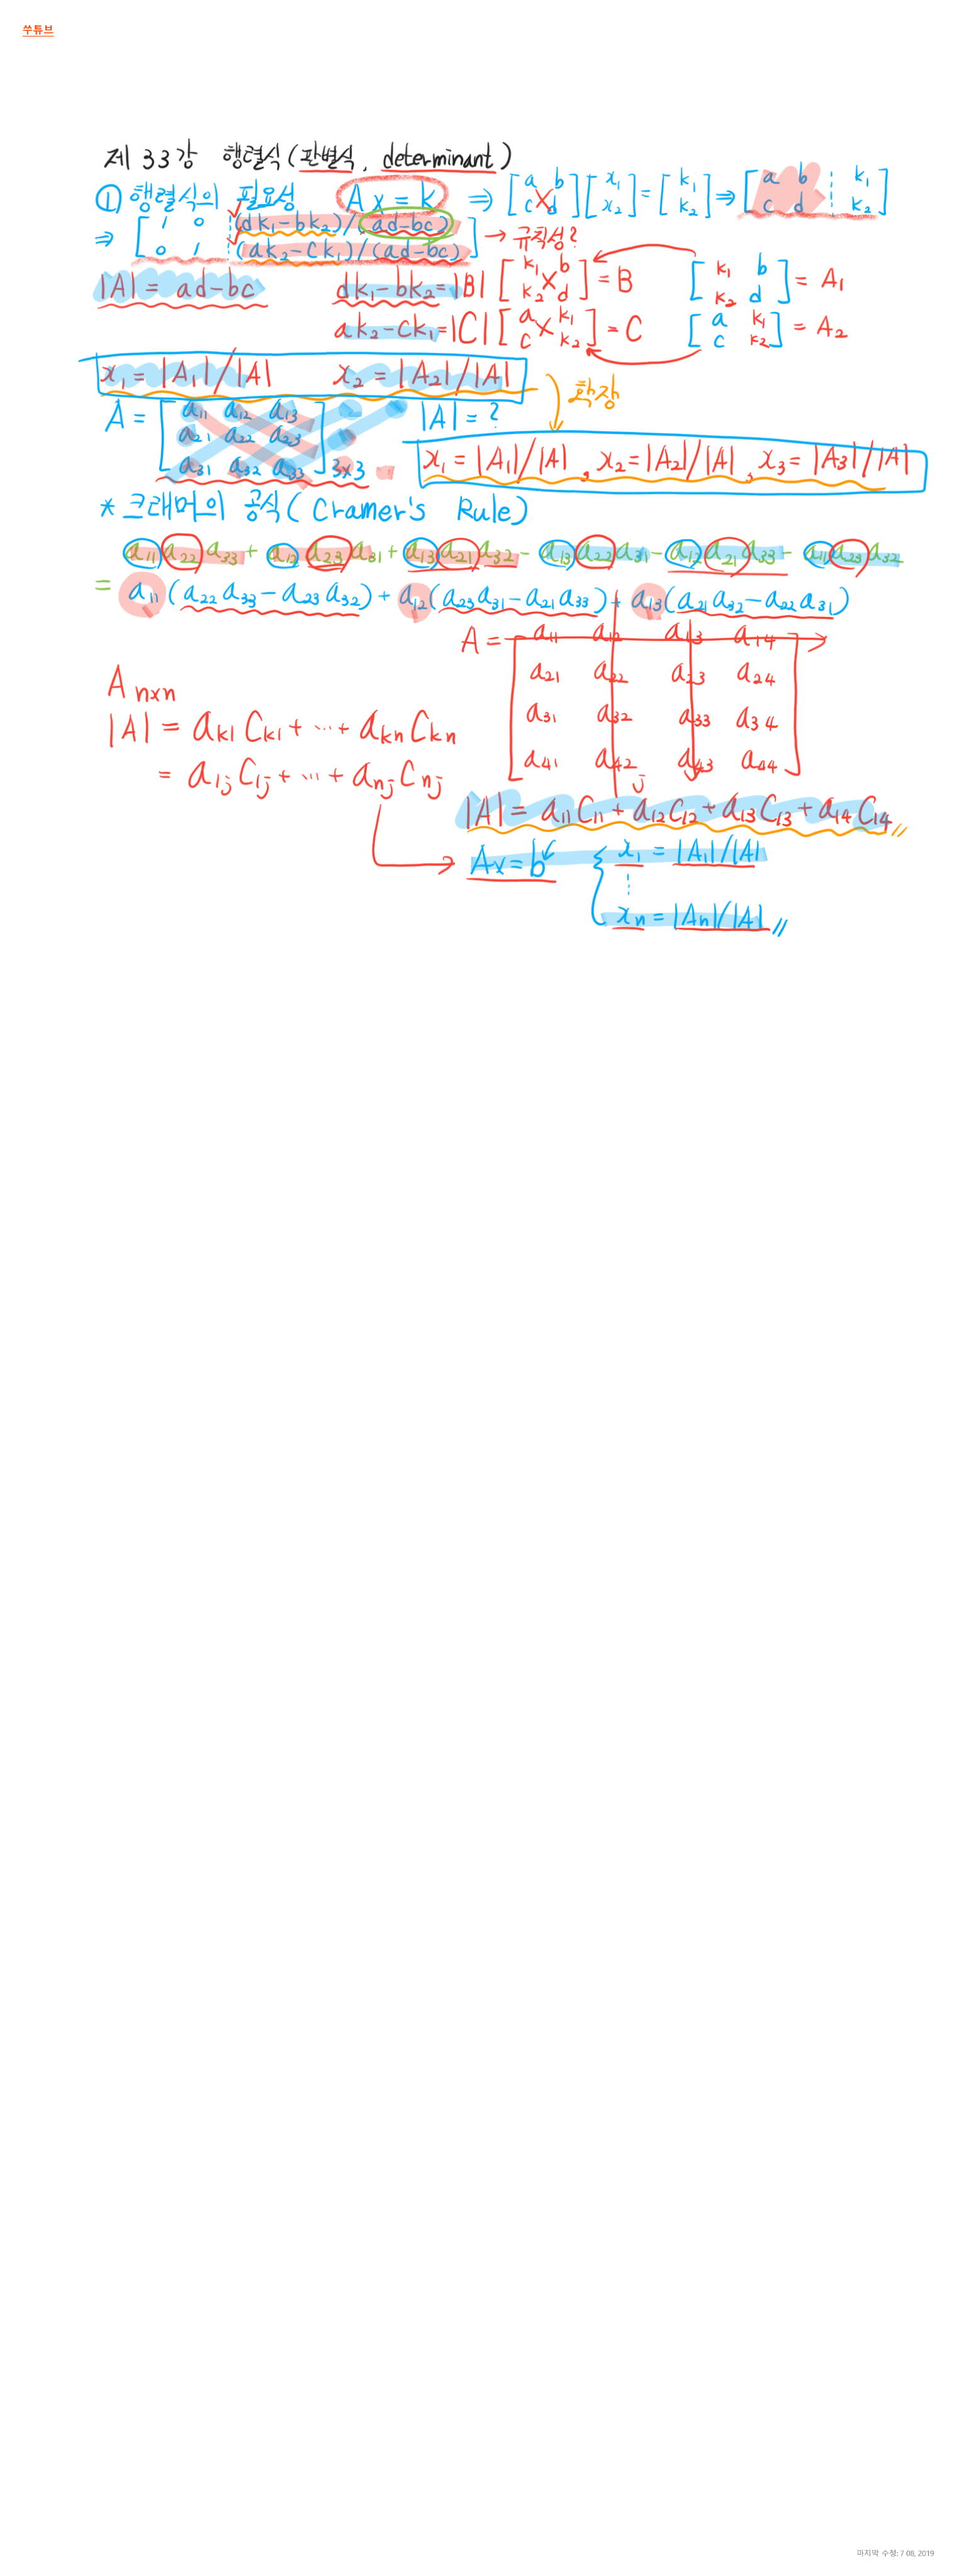 쑤튜브
제 33강 행렬식 (판별식, determinant)
① 행렬식의 필요성 Ax = k ⇒ [a b; c d] [x₁; x₂] = [k₁; k₂] ⇒ [a b ⋮ k₁; c d ⋮ k₂]
⇒ [1 0 ⋮ (dk₁-bk₂)/(ad-bc); 0 1 ⋮ (ak₂-ck₁)/(ad-bc)] → 규칙성?
|A| = ad-bc dk₁-bk₂ = |B| [k₁ b; k₂ d] = B [k₁ b; k₂ d] = A₁
ak₂-ck₁ = |C| [a k₁; c k₂] = C [a k₁; c k₂] = A₂
x₁ = |A₁|/|A| x₂ = |A₂|/|A| 확장
A = [a₁₁ a₁₂ a₁₃; a₂₁ a₂₂ a₂₃; a₃₁ a₃₂ a₃₃] 3x3 |A| = ?
x₁ = |A₁|/|A|, x₂ = |A₂|/|A|, x₃ = |A₃|/|A|
* 크래머의 공식 (Cramer's Rule)
a₁₁a₂₂a₃₃ + a₁₂a₂₃a₃₁ + a₁₃a₂₁a₃₂ - a₁₃a₂₂a₃₁ - a₁₂a₂₁a₃₃ - a₁₁a₂₃a₃₂
= a₁₁(a₂₂a₃₃-a₂₃a₃₂) + a₁₂(a₂₃a₃₁-a₂₁a₃₃) + a₁₃(a₂₁a₃₂-a₂₂a₃₁)
A = [a₁₁ a₁₂ a₁₃ a₁₄; a₂₁ a₂₂ a₂₃ a₂₄; a₃₁ a₃₂ a₃₃ a₃₄; a₄₁ a₄₂ a₄₃ a₄₄]
j
A nxn
|A| = aₖ₁Cₖ₁ + ⋯ + aₖₙCₖₙ
= a₁ⱼC₁ⱼ + ⋯ + aₙⱼCₙⱼ
|A| = a₁₁C₁₁ + a₁₂C₁₂ + a₁₃C₁₃ + a₁₄C₁₄ //
Ax = b { x₁ = |A₁|/|A|
⋮
xₙ = |Aₙ|/|A| //
마지막 수정: 7 08, 2019